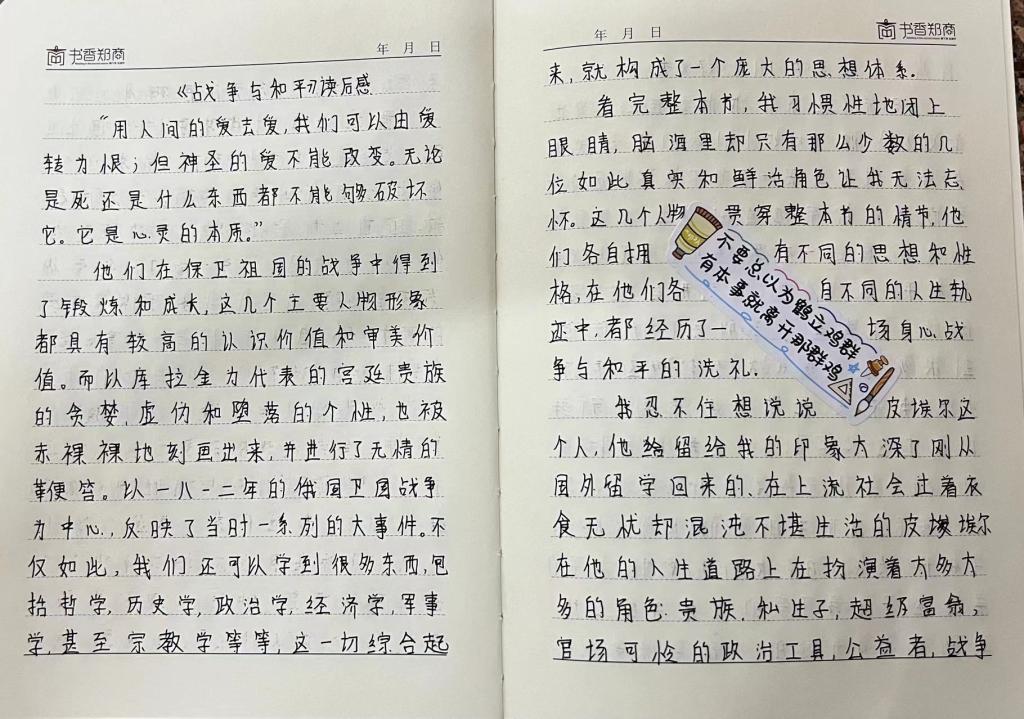 书香郑商
年 月 日
《战争与和平》读后感
“用人间的爱去爱,我们可以由爱
转为恨;但神圣的爱不能改变。无论
是死还是什么东西都不能够破坏
它。它是心灵的本质。”
他们在保卫祖国的战争中得到
了锻炼和成长,这几个主要人物形象
都具有较高的认识价值和审美价
值。而以库拉金为代表的宫廷贵族
的贪婪,虚伪和堕落的个性,也被
赤裸裸地刻画出来,并进行了无情的
鞭笞。以一八一二年的俄国卫国战争
为中心,反映了当时一系列的大事件。不
仅如此,我们还可以学到很多东西,包
括哲学,历史学,政治学,经济学,军事
学,甚至宗教学等等,这一切综合起
年 月 日
书香郑商
来,就构成了一个庞大的思想体系.
看完整本书,我习惯性地闭上
眼睛,脑海里却只有那么少数的几
位如此真实和鲜活角色让我无法忘
怀。这几个人物 贯穿整本书的情节,他
们各自拥 有不同的思想和性
格,在他们各 自不同的人生轨
迹中,都经历了一 场身心战
争与和平的洗礼.
不要总以为鹤立鸡群
有本事就离开那群鸡
我忍不住想说说 皮埃尔这
个人,他给留给我的印象太深了刚从
国外留学回来的、在上流社会过着衣
食无忧却混沌不堪生活的皮埃埃尔
在他的人生道路上在扮演着太多太
多的角色:贵族,私生子,超级富翁,
官场可怜的政治工具,公益者,战争